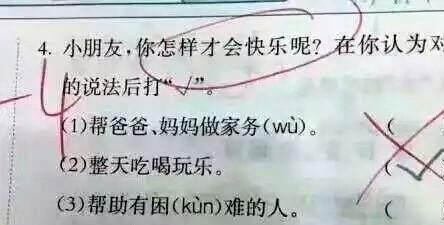 4. 小朋友,你怎样才会快乐呢? 在你认为对
的说法后打“√”。
(1)帮爸爸、妈妈做家务(wù)。 (
(2)整天吃喝玩乐。 ( √
(3)帮助有困(kùn)难的人。 (
-4